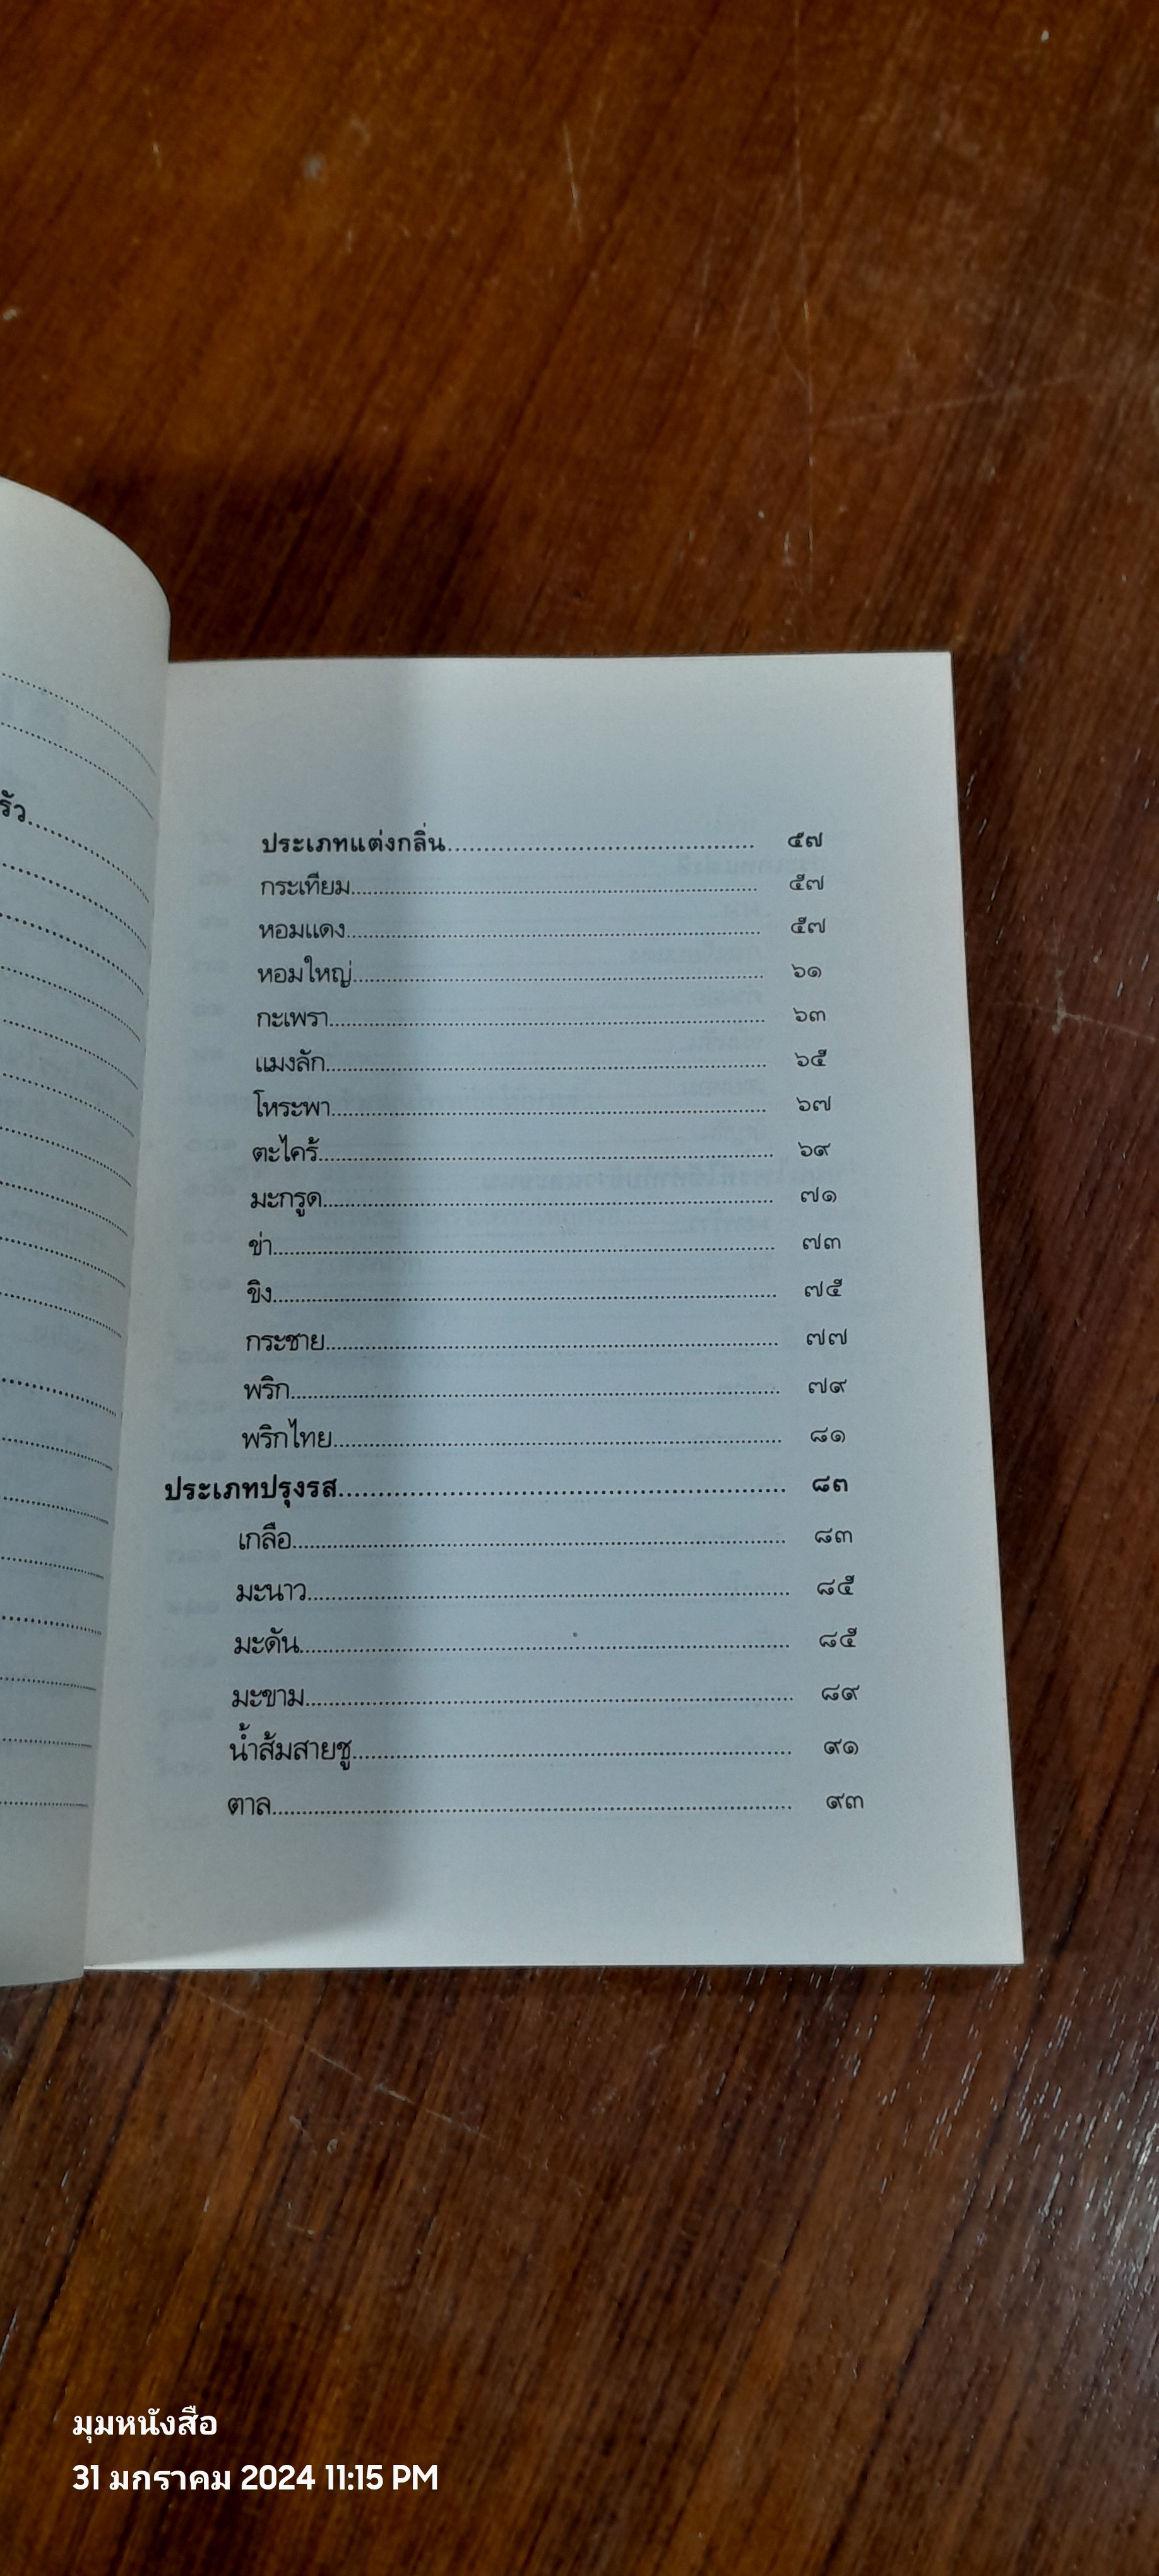 รัว........
ประเภทแต่งกลิ่น........ ๕๗
กระเทียม........ ๕๗
หอมแดง........ ๕๗
หอมใหญ่........ ๖๑
กะเพรา........ ๖๓
แมงลัก........ ๖๕
โหระพา........ ๖๗
ตะไคร้........ ๖๙
มะกรูด........ ๗๑
ข่า........ ๗๓
ขิง........ ๗๕
กระชาย........ ๗๗
พริก........ ๗๙
พริกไทย........ ๘๑
ประเภทปรุงรส........ ๘๓
เกลือ........ ๘๓
มะนาว........ ๘๕
มะดัน........ ๘๕
มะขาม........ ๘๙
น้ำส้มสายชู........ ๙๑
ตาล........ ๙๓
มุมหนังสือ
31 มกราคม 2024 11:15 PM